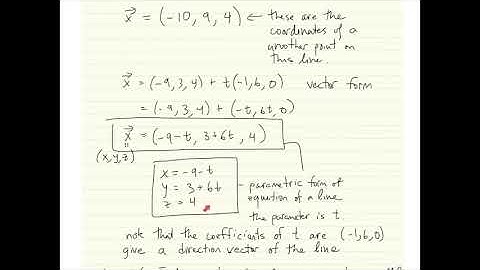 x⃗ = (-10, 9, 4) ← these are the
coordinates of a
another point on
this line.
x⃗ = (-9, 3, 4) + t(-1, 6, 0) vector form
= (-9, 3, 4) + (-t, 6t, 0)
x⃗ = (-9-t, 3+6t, 4)
(x,y,z)
x = -9-t
y = 3+6t
z = 4
- parametric form of
equation of a line
- the parameter is t
note that the coefficients of t are (-1,6,0)
give a direction vector of the line